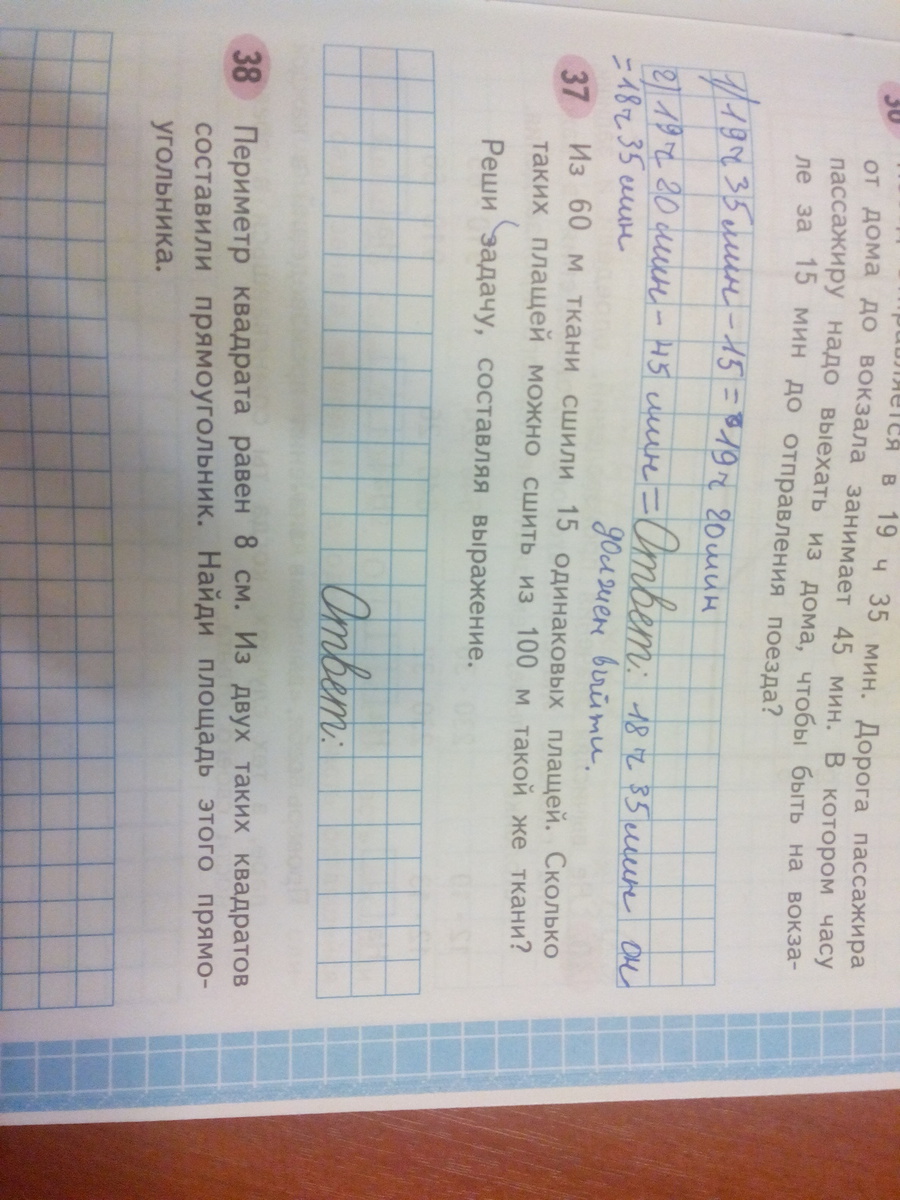 в 19 ч 35 мин. Дорога пассажира
от дома до вокзала занимает 45 мин. В котором часу
пассажиру надо выехать из дома, чтобы быть на вокза-
ле за 15 мин до отправления поезда?
1) 19 ч 35 мин - 15 = 19 ч 20 мин
2) 19 ч 20 мин - 45 мин = Ответ: 18 ч 35 мин он
= 18 ч 35 мин. должен выйти.
37 Из 60 м ткани сшили 15 одинаковых плащей. Сколько
таких плащей можно сшить из 100 м такой же ткани?
Реши задачу, составляя выражение.
Ответ:
38 Периметр квадрата равен 8 см. Из двух таких квадратов
составили прямоугольник. Найди площадь этого прямо-
угольника.